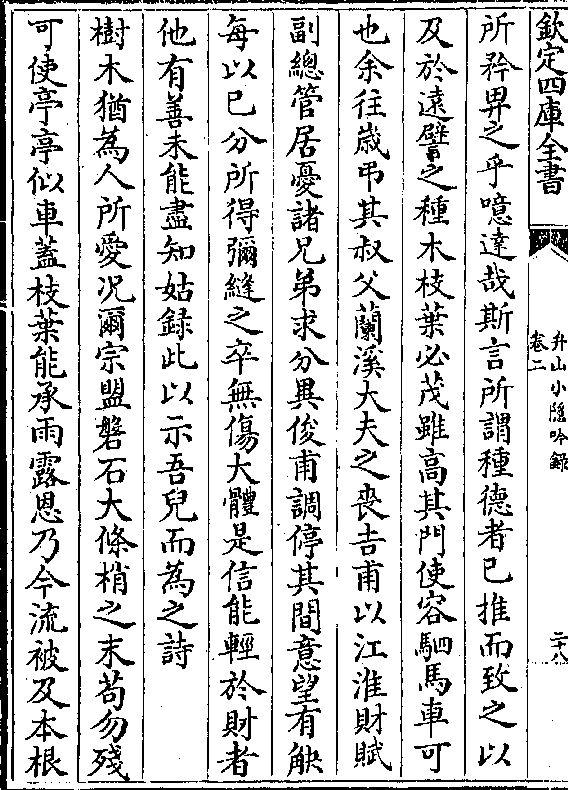 欽定四庫全書
弁山小隱吟録
卷二
二十八
所矜畀之乎噫達哉斯言所謂種德者已推而致之以
及於遠譬之種木枝葉必茂雖高其門使容駟馬車可
也余往嵗弔其叔父蘭溪大夫之喪吉甫以江淮財賦
副總管居憂諸兄弟求分異俊甫調停其間意望有觖
每以已分所得彌縫之卒無傷大體是信能輕於財者
他有善未能盡知姑録此以示吾兒而為之詩
樹木猶為人所愛况爾宗盟磐石大條梢之末苟勿殘
可使亭亭似車蓋枝葉能承雨露恩乃今流被及本根